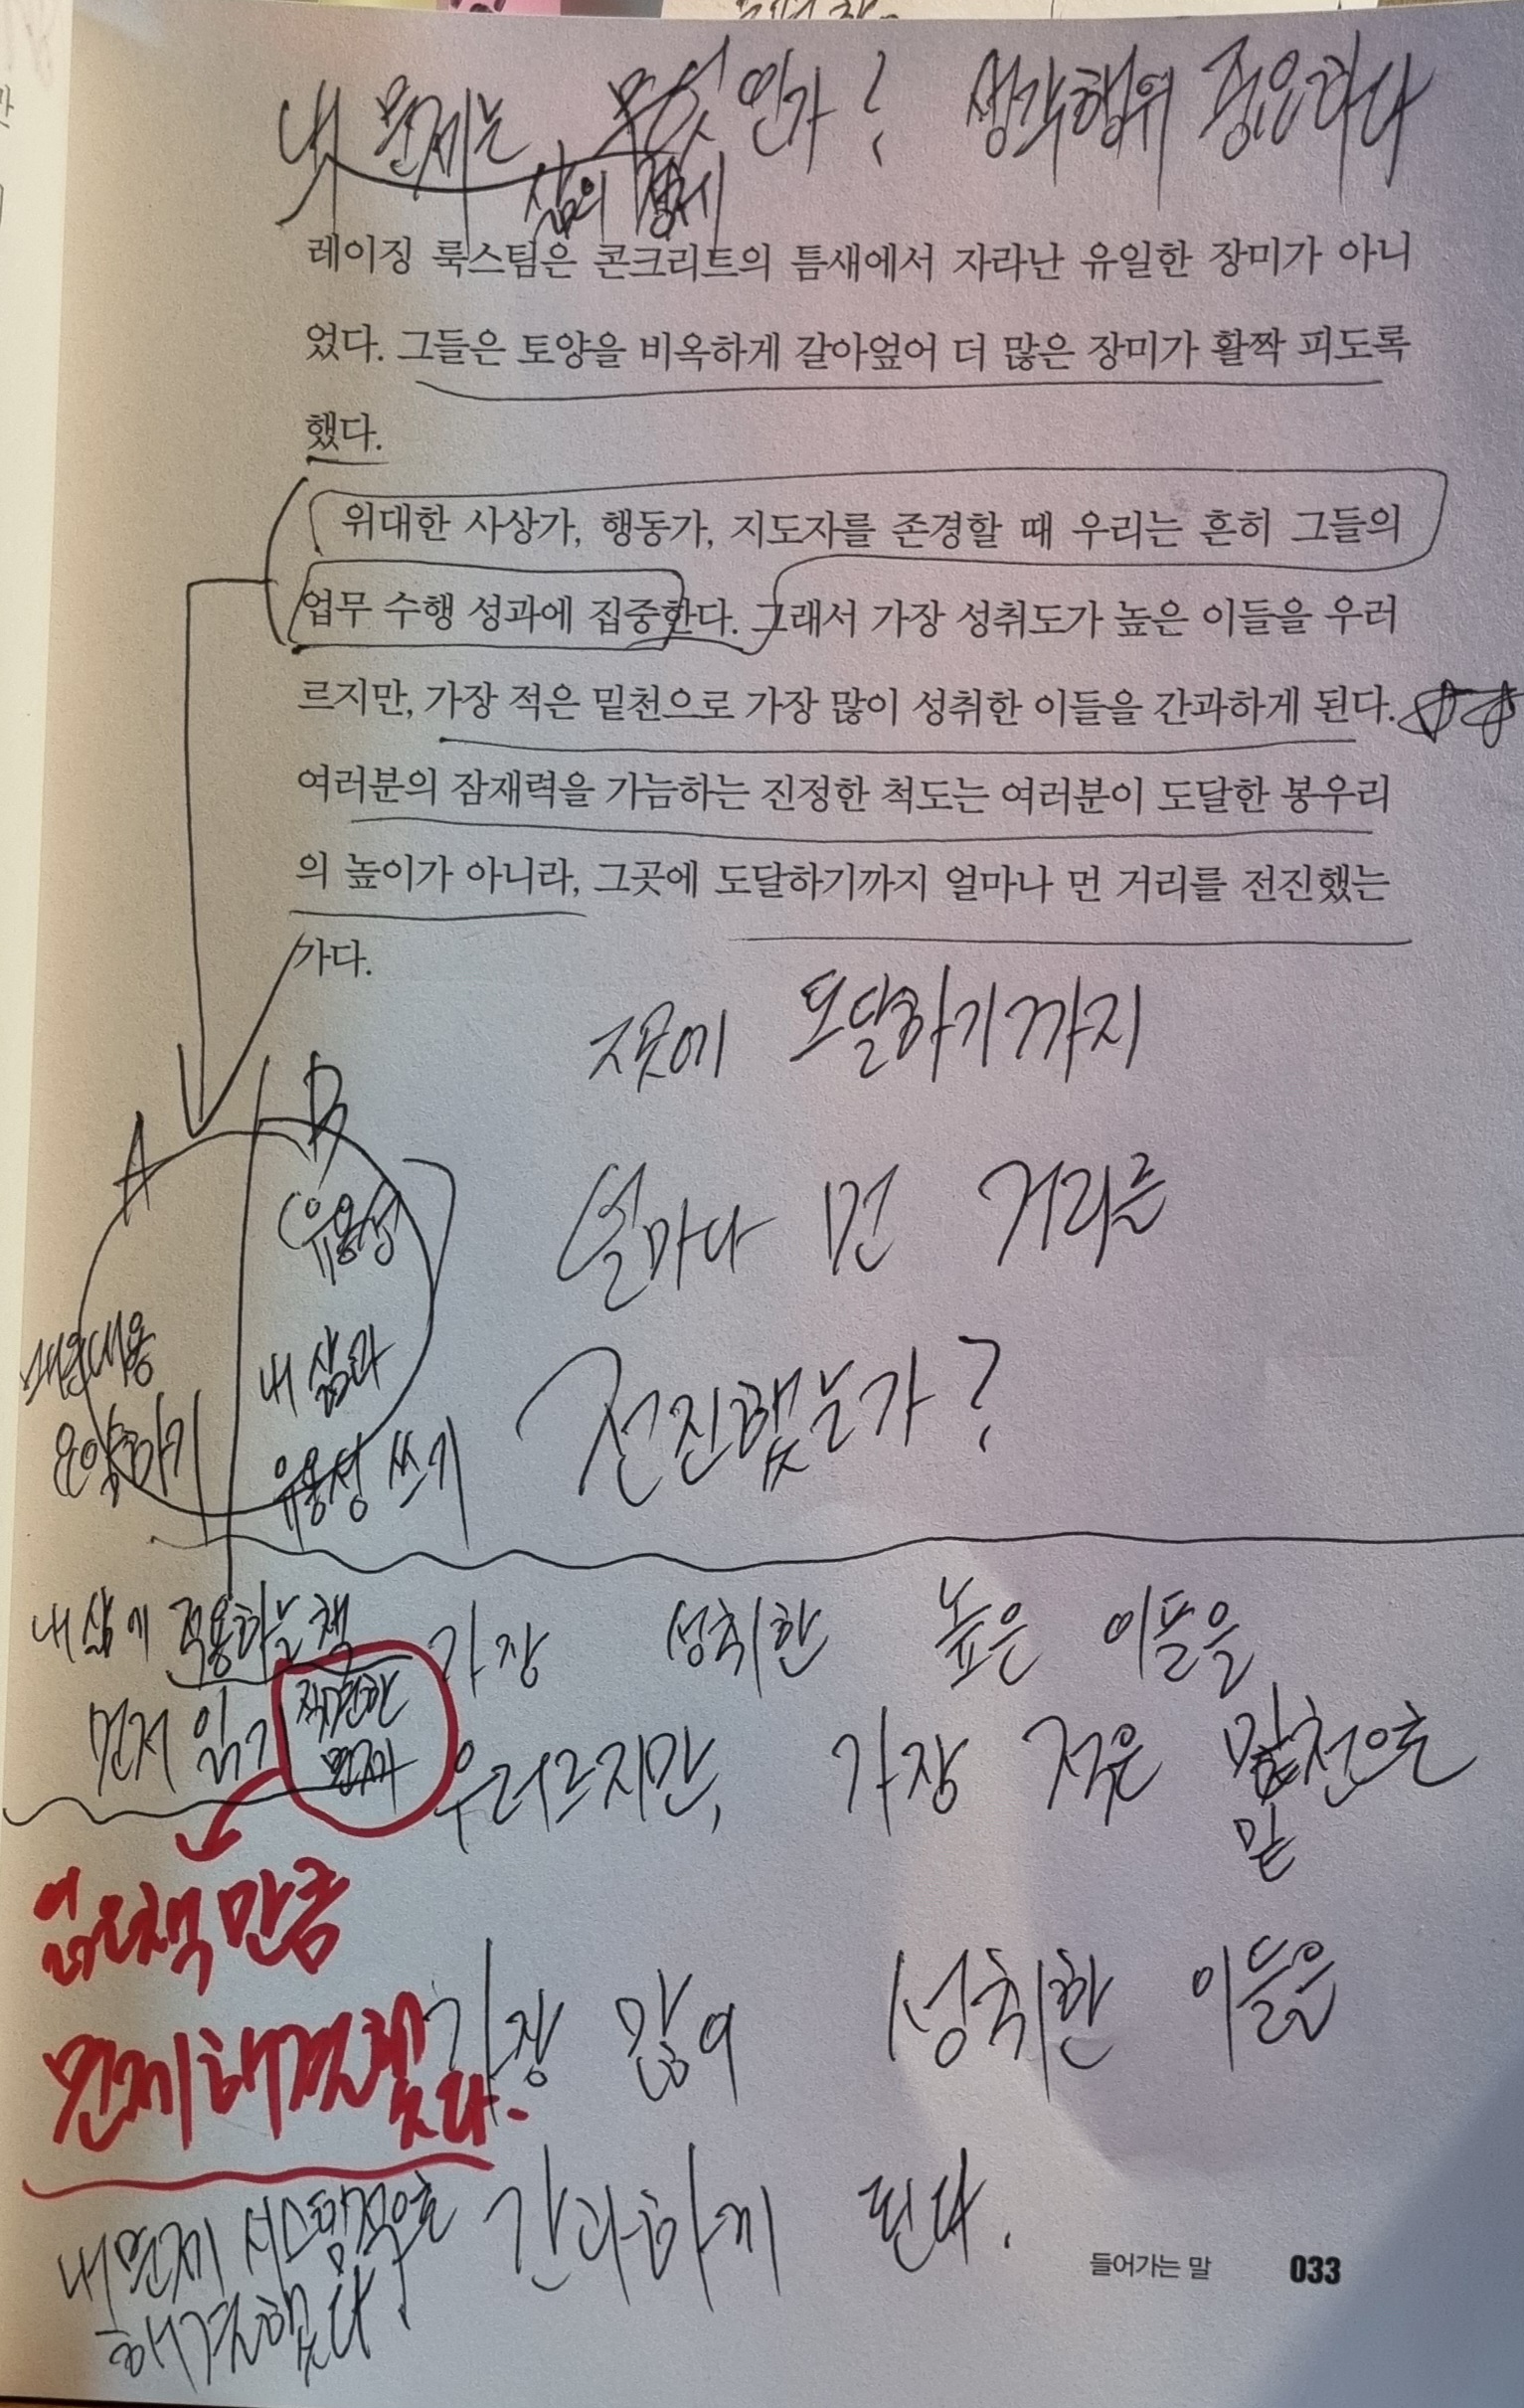 내 문제는 무엇인가? 생각행위 중요하다
삶의 경제
레이징 룩스팀은 콘크리트의 틈새에서 자라난 유일한 장미가 아니
었다. 그들은 토양을 비옥하게 갈아엎어 더 많은 장미가 활짝 피도록
했다.
위대한 사상가, 행동가, 지도자를 존경할 때 우리는 흔히 그들의
업무 수행 성과에 집중한다. 그래서 가장 성취도가 높은 이들을 우러
르지만, 가장 적은 밑천으로 가장 많이 성취한 이들을 간과하게 된다.
여러분의 잠재력을 가늠하는 진정한 척도는 여러분이 도달한 봉우리
의 높이가 아니라, 그곳에 도달하기까지 얼마나 먼 거리를 전진했는
가다.
도달하기까지
얼마나 먼 거리를
전진했는가?
A
B
유용성
내용
요약하기
내 삶과
유용성 쓰기
내 삶에 적용하는 책
먼저 읽기
직면한
문제
읽은 책 만큼
문제 해결했다.
내 문제 시스템적으로
해결했다.
가장 성취한 높은 이들을
우러르지만, 가장 적은 밑천으로
밑
가장 많이 성취한 이들은
간과하게 된다.
들어가는 말 033